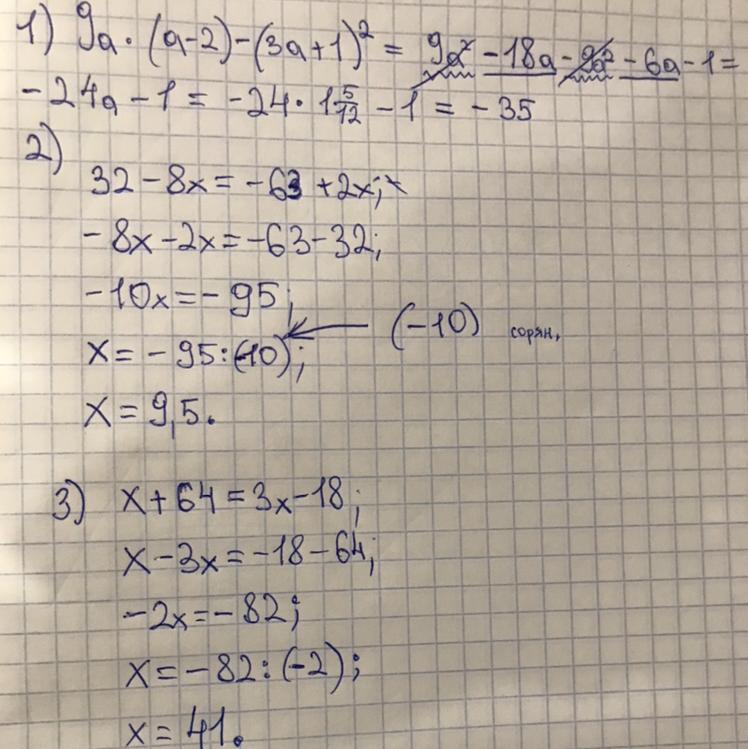 1) 9a · (a-2) - (3a+1)² = 9a² - 18a - 9a² - 6a - 1 =
- 24a - 1 = - 24 · 1 5/12 - 1 = - 35
2)
32 - 8x = - 63 + 2x;
- 8x - 2x = - 63 - 32;
- 10x = - 95;
(-10) сорян,
x = - 95 : (-10);
x = 9,5.
3) x + 64 = 3x - 18;
x - 3x = - 18 - 64;
- 2x = - 82;
x = - 82 : (-2);
x = 41.